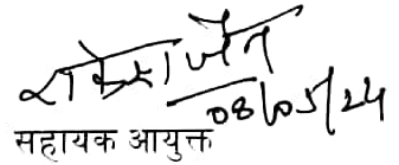 राकेश जैन
08/05/24
सहायक आयुक्त